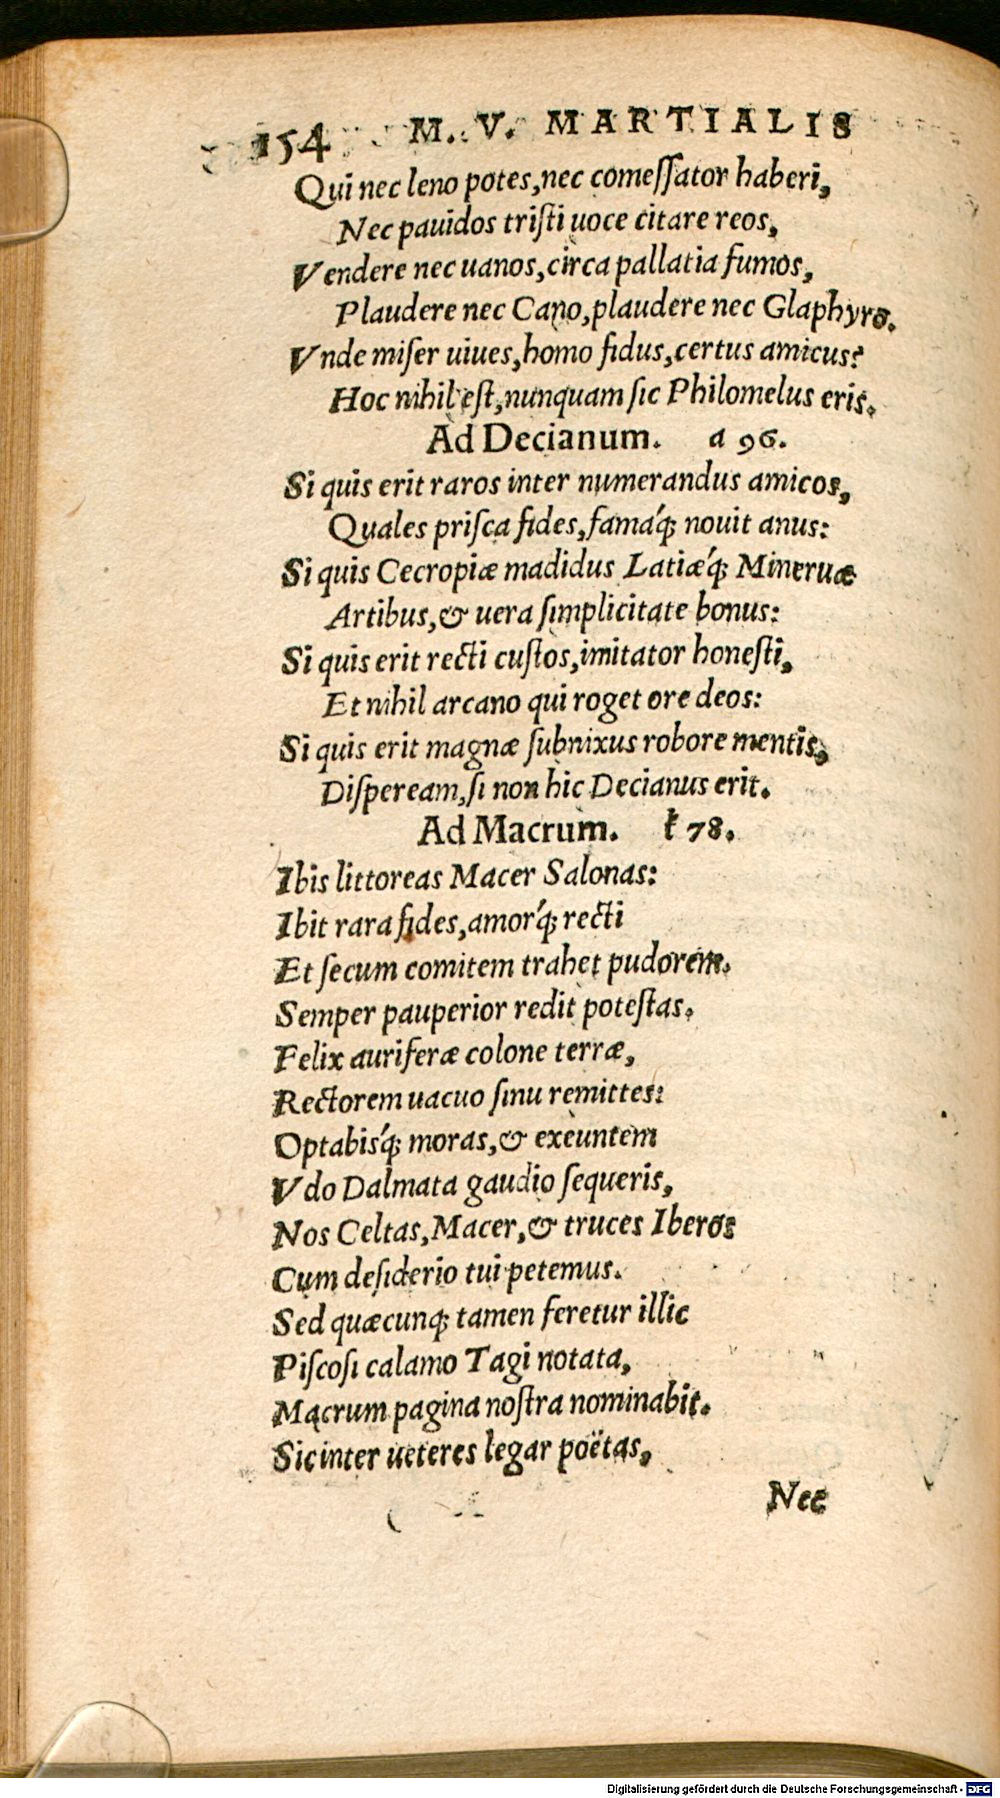 154 M. V. MARTIALIS
Qui nec leno potes,nec comeſſator haberi,
Nec pauidos triſti uoce citare reos,
Vendere nec uanos,circa pallatia fumos,
Plaudere nec Cano,plaudere nec Glaphyro.
Vnde miſer uiues,homo fidus,certus amicus?
Hoc nihil eſt,nunquam ſic Philomelus eris.
Ad Decianum. a 96.
Si quis erit raros inter numerandus amicos,
Quales priſca fides,famáq; nouit anus:
Si quis Cecropiæ madidus Latiæq́; Mineruæ
Artibus,& uera ſimplicitate bonus:
Si quis erit recti cuſtos,imitator honeſti,
Et nihil arcano qui roget ore deos:
Si quis erit magnæ ſubnixus robore mentis,
Diſpeream,ſi non hic Decianus erit.
Ad Macrum. ŧ 78.
Ibis littoreas Macer Salonas:
Ibit rara fides,amorq́; recti
Et ſecum comitem trahet pudorem.
Semper pauperior redit poteſtas.
Felix auriferæ colone terræ,
Rectorem uacuo ſinu remittes:
Optabisq́; moras,& exeuntem
Vdo Dalmata gaudio ſequeris,
Nos Celtas,Macer,& truces Iberos
Cum deſiderio tui petemus.
Sed quæcunq; tamen feretur illic
Piſcoſi calamo Tagi notata,
Macrum pagina noſtra nominabit.
Sic inter ueteres legar poëtas,
Nec
Digitalisierung gefördert durch die Deutsche Forschungsgemeinschaft - DFG